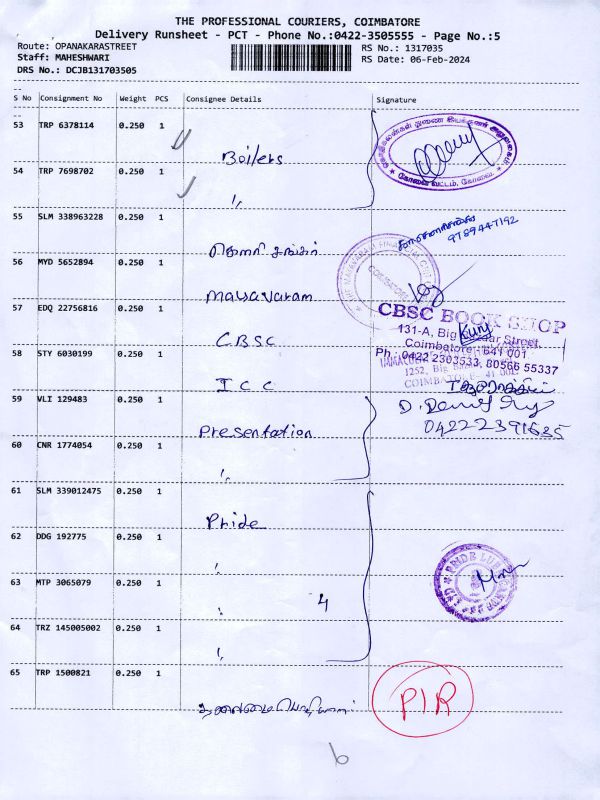 THE PROFESSIONAL COURIERS, COIMBATORE
Delivery Runsheet - PCT - Phone No.:0422-3505555 - Page No.:5
Route: OPANAKARASTREET
RS No.: 1317035
Staff: MAHESHWARI
RS Date: 06-Feb-2024
DRS No.: DCJB131703505
S No Consignment No Weight PCS Consignee Details Signature
53 TRP 6378114 0.250 1
Boilers
54 TRP 7698702 0.250 1
"
55 SLM 338963228 0.250 1
9789447192
56 MYD 5652894 0.250 1
Mayavaram
COIMBATORE
57 EDQ 22756816 0.250 1
CBSC BOOK SHOP
131-A, Big Bazaar Street,
CBSC
Coimbatore - 641 001
58 STY 6030199 0.250 1
Ph : 0422 2303533, 80566 55337
ICC
59 VLI 129483 0.250 1
04222391635
Presentation
60 CNR 1774054 0.250 1
"
61 SLM 339012475 0.250 1
Pride
62 DDG 192775 0.250 1
"
63 MTP 3065079 0.250 1
" 4
64 TRZ 145005002 0.250 1
"
65 TRP 1500821 0.250 1
PIR
6